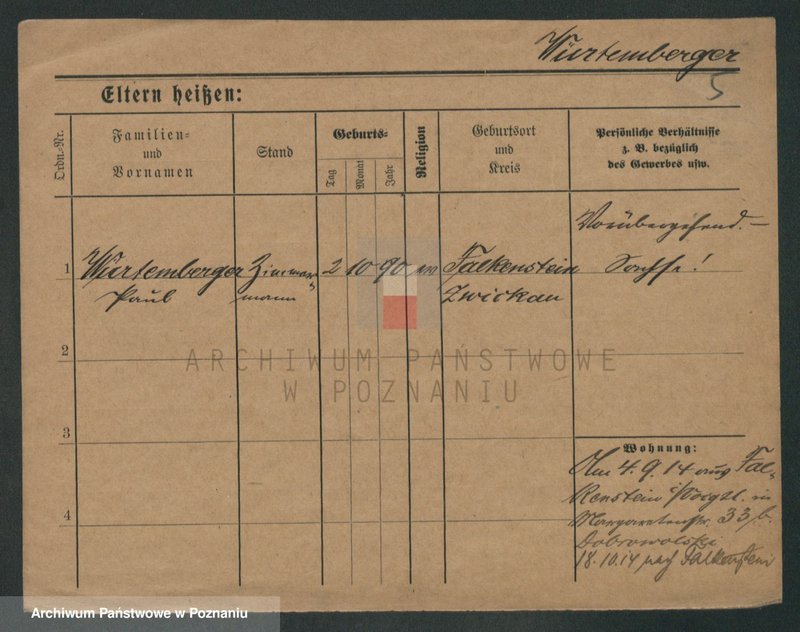 Würtemberger
5
Eltern heißen:
Ordn.-Nr.
Familien-
und
Vornamen
Stand
Geburts-
Tag
Monat
Jahr
Religion
Geburtsort
und
Kreis
Persönliche Verhältnisse
z. B. bezüglich
des Gewerbes usw.
Vorübergehend.—
1
Würtemberger
Paul
Zimmer-
mann
2
10
90
Falkenstein
Zwickau
Sachse!
2
ARCHIWUM PAŃSTWOWE
W POZNANIU
3
4
Wohnung:
Am 4.9.14 aus Fal-
kenstein i/Voigtl. in
Margaretenstr. 33 b.
Dobrowolski
18.10.14 nach Falkenstein
Archiwum Państwowe w Poznaniu